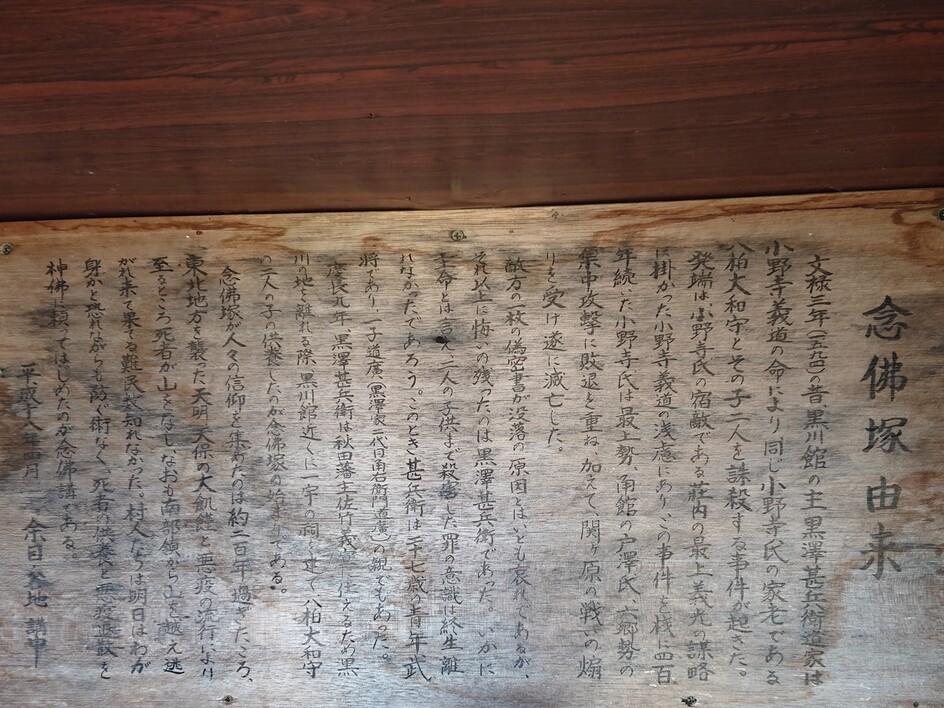 念佛塚由来
文禄三年(一五九四)の昔黒川館の主黒澤甚兵衛道家は
小野寺義道の命により同じ小野寺氏の家老である
八柏大和守とその子二人を誅殺する事件が起きた。
発端は小野寺氏の宿敵である荘内の最上義光の謀略
に掛かった小野寺義道の浅慮にあり、この事件を機に四百
年続いた小野寺氏は最上勢、角館の戸澤氏、六郷勢の
集中攻撃に敗退を重ね、加えて、関ヶ原の戦いの煽
りを受け遂に滅亡した。
敵方の一枚の偽密書が没落の原因とはいとも哀れであるが、
それ以上に悔いの残ったのは黒澤甚兵衛であった。いかに
主命とは言え、二人の子供まで殺害した罪の意識は終生離
れなかったであろう。このとき甚兵衛は二十七歳の青年武
将であり、一子道廣(黒澤家二代目甚右衛門道廣)の親でもあった。
慶長九年、黒澤甚兵衛は秋田藩主佐竹義宣に仕えるため黒
川の地を離れる際、黒川館近くに一宇の祠を建て八柏大和守
の二人の子の供養したのが念佛塚の始まりである。
念佛塚が人々の信仰を集めたのは約二百年過ぎたころ、
東北地方を襲った天明、天保の大飢饉と悪疫の流行により
至るところ死者が山をなし、なおも南部領から山を越え逃
がれ来て果てる難民数知れなかった。村人たちは明日はわが
身かと恐れながらも防ぐ術なく、死者の供養と悪疫退散を
神佛に頼ってはじめたのが念佛講である。
平成十八年四月 余目発地 講中